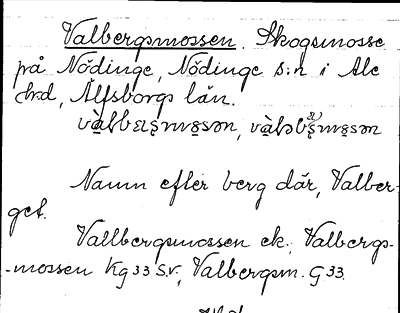 Valbergsmossen. Skogsmosse
på Nödinge, Nödinge s:n i Ale
hrd, Älfsborgs län.
Namn efter berg där, Valber-
get.
Vallbergsmossen ek. Valbergs-
-mossen Kg 33 S.V., Valbergsm. G 33.